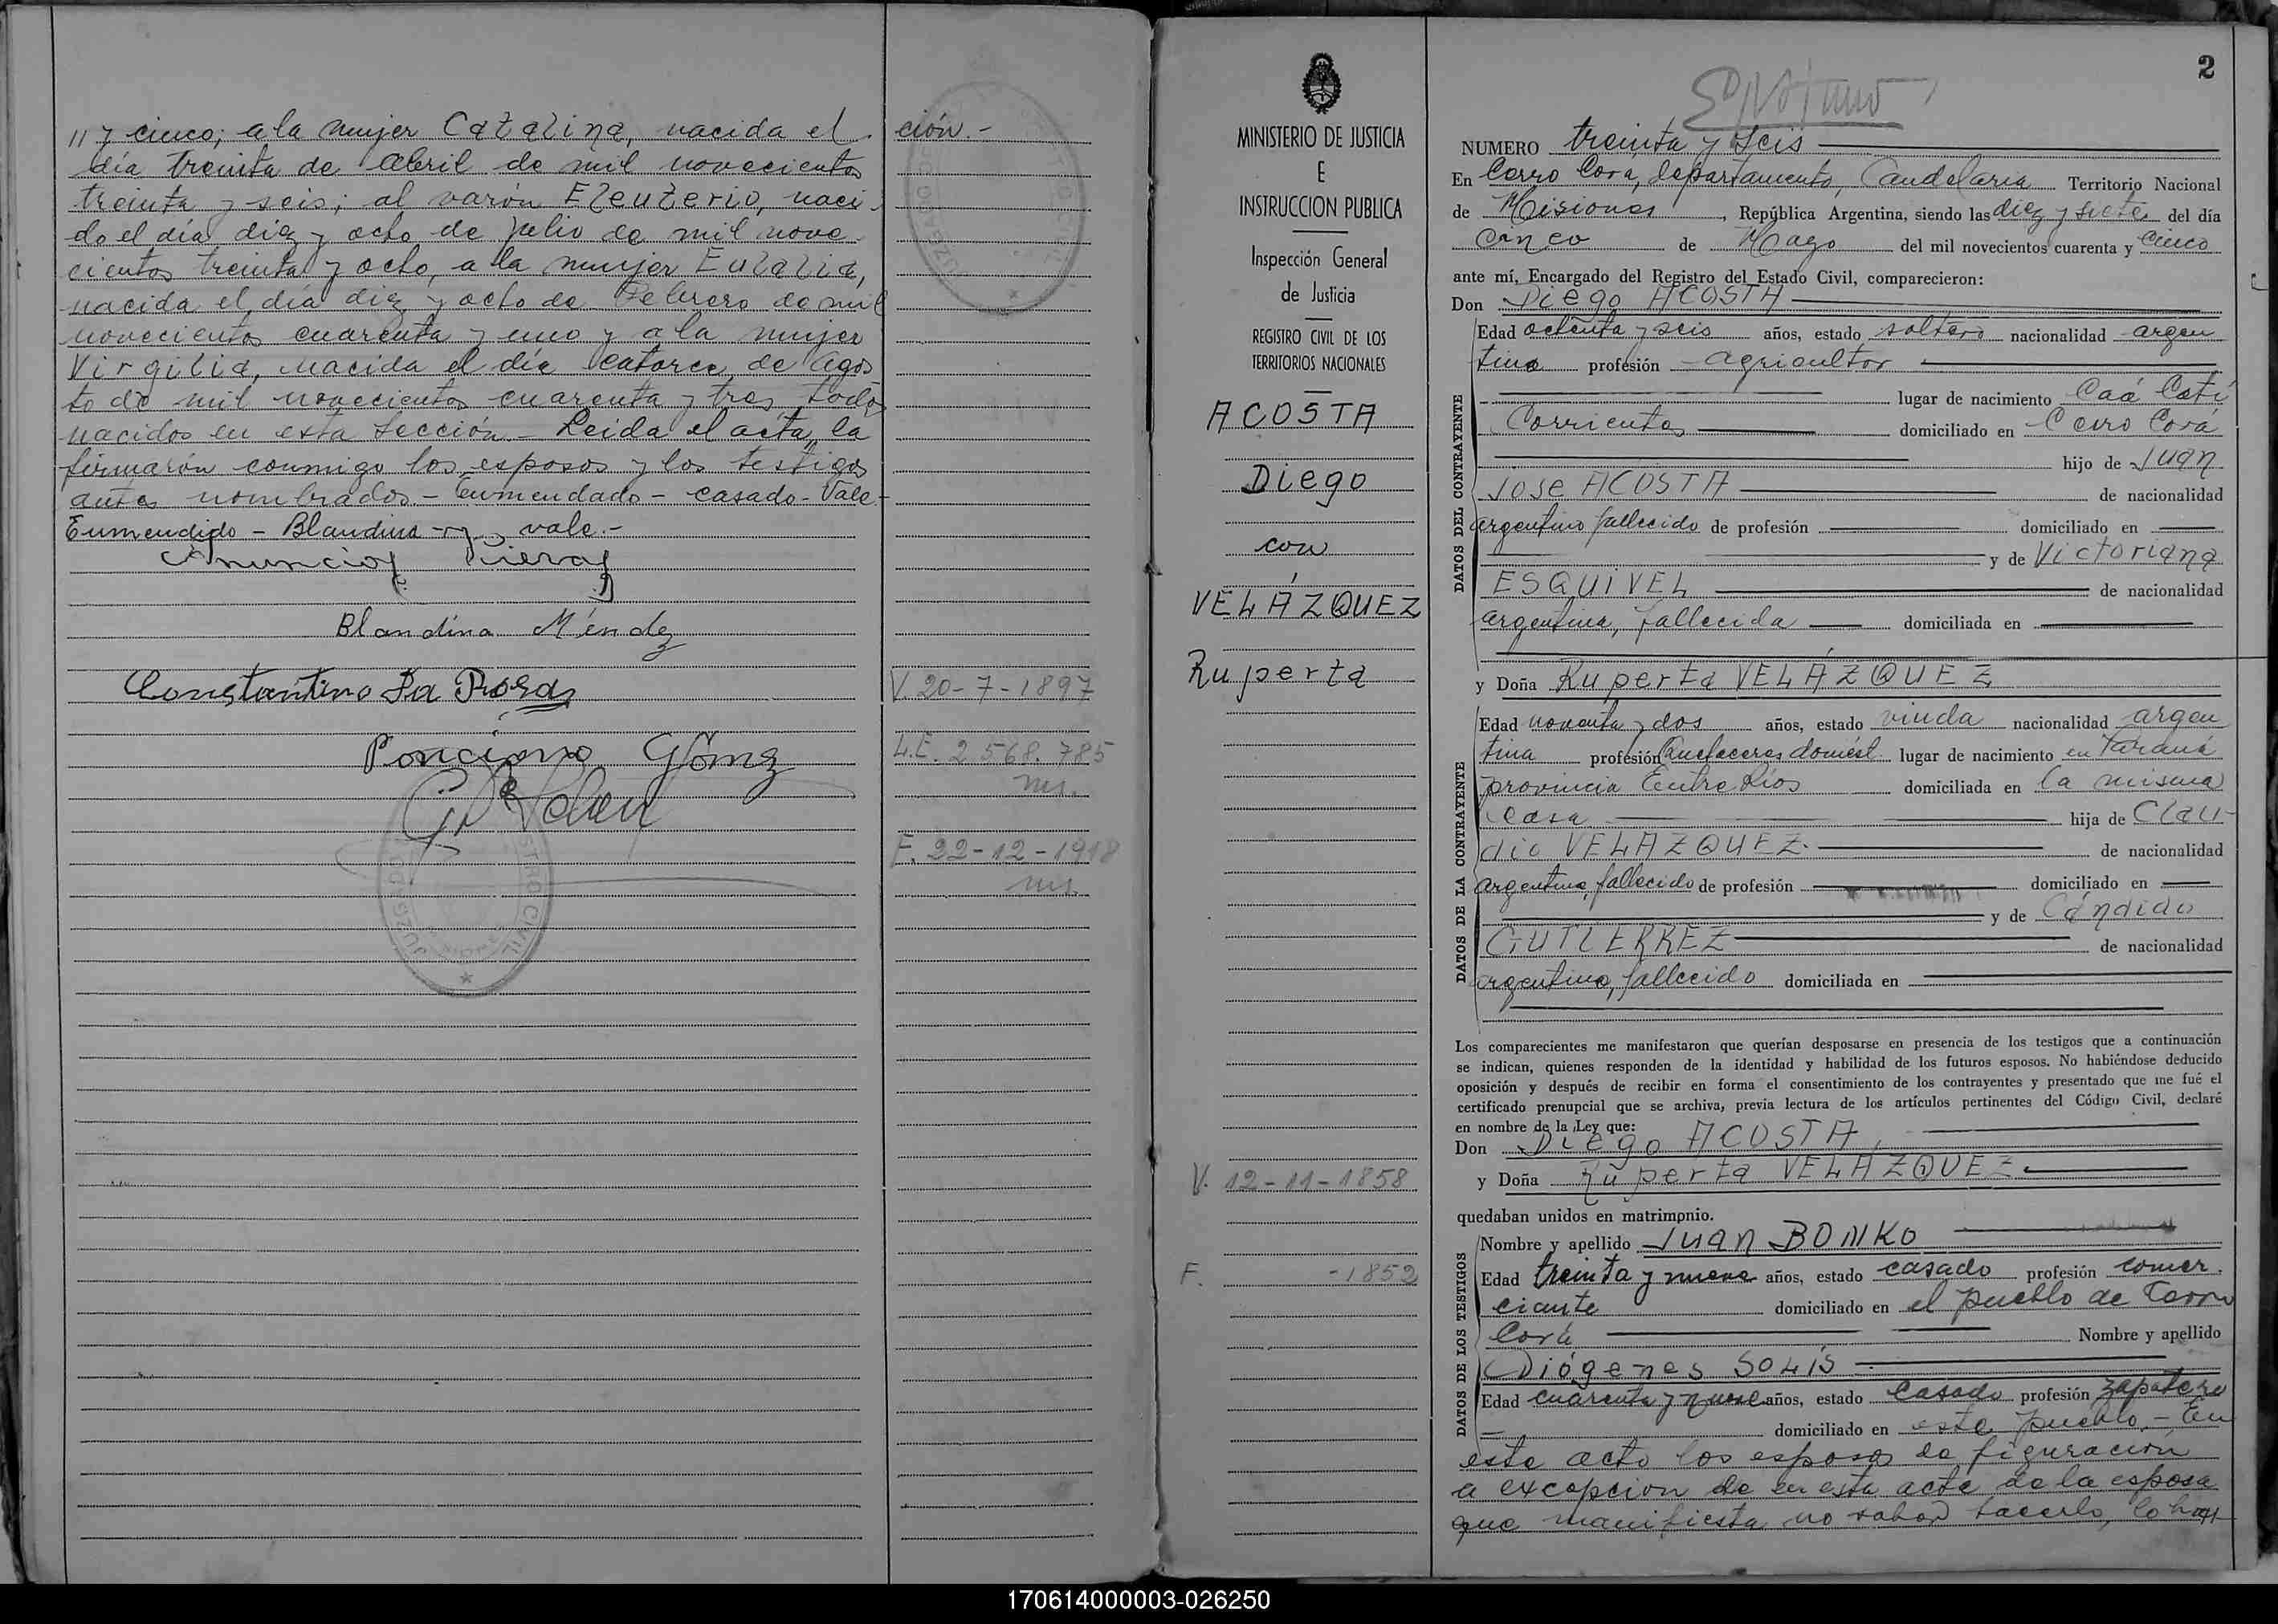 // y cinco; a la mujer Catalina, nacida el
día treinta de Abril de mil novecientos
treinta y seis; al varón Eleuterio, naci-
do el día diez y ocho de Julio de mil nove-
cientos treinta y ocho, a la mujer Eulalia,
nacida el día diez y ocho de Febrero de mil
novecientos cuarenta y uno y a la mujer
Virgilia, nacida el día catorce de Agos
to de mil novecientos cuarenta y tres, todos
nacidos en esta Sección.- Leida el acta, la
firmarón conmigo los esposos y los testigos
antes nombrados.- Enmendado - casado - Vale-
Enmendido - Blandina - vale.-
Blandina Méndez
Constantino La Rosa
Ponciano Gómez
ción.-
V. 20-7-1897
L.E. 2.568.785
F. 22-12-1918
REGISTRO CIVIL
JUZG
MINISTERIO DE JUSTICIA
E
INSTRUCCION PUBLICA
Inspección General
de Justicia
REGISTRO CIVIL DE LOS
TERRITORIOS NACIONALES
ACOSTA
Diego
con
VELÁZQUEZ
Ruperta
V. 12-11-1858
F. -1852
2
NUMERO treinta y seis
En Cerro Corá, departamento, Candelaria Territorio Nacional
de Misiones, República Argentina, siendo las diez y siete del día
cinco de Mayo del mil novecientos cuarenta y cinco
ante mí, Encargado del Registro del Estado Civil, comparecieron:
Don Diego ACOSTA
DATOS DEL CONTRAYENTE
Edad ochenta y seis años, estado soltero nacionalidad argen
tina profesión agricultor
lugar de nacimiento Caá Catí
Corrientes domiciliado en Cerro Corá
hijo de Juan
José ACOSTA de nacionalidad
argentino fallecido de profesión domiciliado en
y de Victoriana
ESQUIVEL de nacionalidad
argentina, fallecida domiciliada en
y Doña Ruperta VELÁZQUEZ
DATOS DE LA CONTRAYENTE
Edad noventa y dos años, estado viuda nacionalidad argen
tina profesión Quehaceres domést. lugar de nacimiento en Paraná
provincia Entre Ríos domiciliada en la misma
casa hija de Clau-
dio VELAZQUEZ. de nacionalidad
argentino, fallecido de profesión domiciliado en
y de Cándido
GUTIERREZ de nacionalidad
argentino, fallecido domiciliada en
Los comparecientes me manifestaron que querían desposarse en presencia de los testigos que a continuación
se indican, quienes responden de la identidad y habilidad de los futuros esposos. No habiéndose deducido
oposición y después de recibir en forma el consentimiento de los contrayentes y presentado que me fué el
certificado prenupcial que se archiva, previa lectura de los artículos pertinentes del Código Civil, declaré
en nombre de la Ley que:
Don Diego ACOSTA,
y Doña Ruperta VELÁZQUEZ
quedaban unidos en matrimonio.
DATOS DE LOS TESTIGOS
Nombre y apellido Juan BONKO
Edad treinta y nueve años, estado casado profesión comer.
ciante domiciliado en el pueblo de Cerro
Corá Nombre y apellido
Diógenes SOLÍS
Edad cuarenta y nueve años, estado Casado profesión zapatero
domiciliado en este pueblo.- En
este acto los esposos de figuración
a excepción de en esta acta de la esposa
que manifiesta no saber hacerlo, lo hace
170614000003-026250